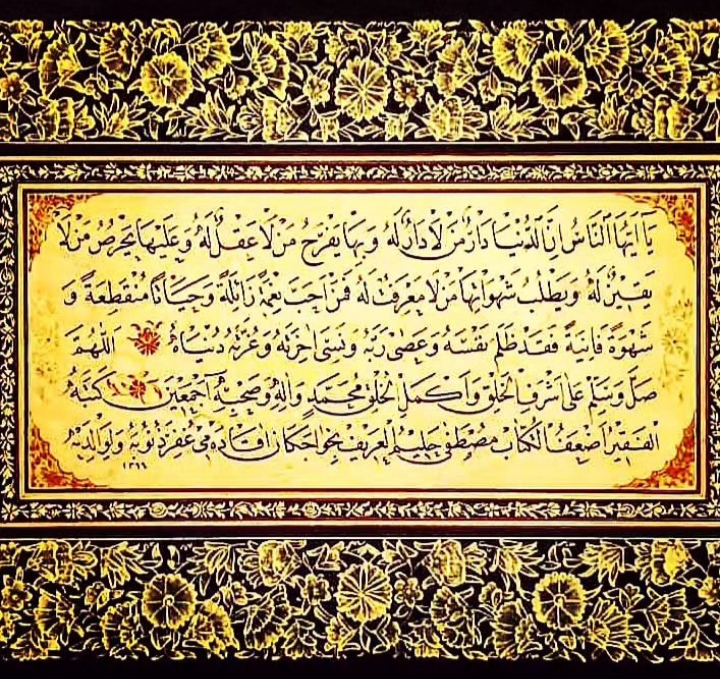 يَا اَيُّهَا النَّاسُ اِنَّ الدُّنْيَا دَارُ مَنْ لَا دَارَ لَهُ وَبِهَا يَفْرَحُ مَنْ لَا عَقْلَ لَهُ وَعَلَيْهَا يَحْرِصُ مَنْ لَا
يَقِينَ لَهُ وَيَطْلُبُ شَهَوَاتِهَا مَنْ لَا مَعْرِفَةَ لَهُ فَمَنْ اَحَبَّ نِعْمَةً زَائِلَةً وَحَيَاتًا مُنْقَطِعَةً وَ
شَهْوَةً فَانِيَةً فَقَدْ ظَلَمَ نَفْسَهُ وَعَصٰى رَبَّهُ وَنَسِىَ اٰخِرَتَهُ وَغَرَّتْهُ دُنْيَاهُ اَللّٰهُمَّ
صَلِّ وَسَلِّمْ عَلٰى اَشْرَفِ الْخَلْقِ وَاَكْمَلِ الْخَلْقِ مُحَمَّدٍ وَاٰلِهِ وَصَحْبِهِ اَجْمَعِينَ كَتَبَهُ
الْفَقِيرُ اَضْعَفُ الْكُتَّابِ مُصْطَفٰى حَلِيمُ الْعَرِيفُ بِخَواجَكَان اُفْتَادَه مِى غُفِرَ ذُنُوبُهُ وَلِوَالِدَيْهِ
١٣٦٦